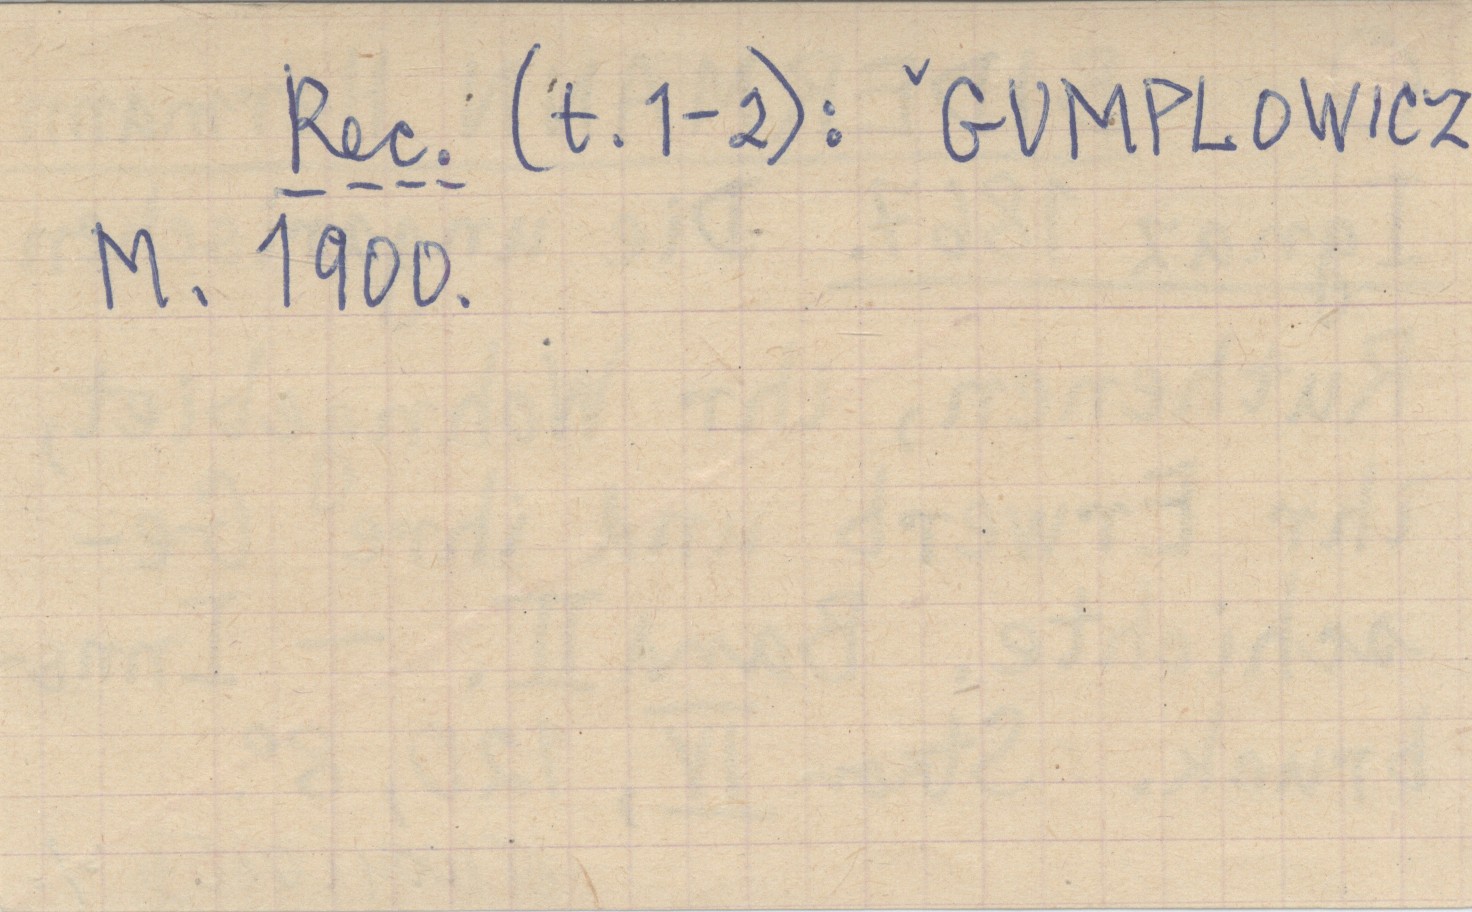 Rec. (t. 1-2): ˇGUMPLOWICZ
M. 1900.